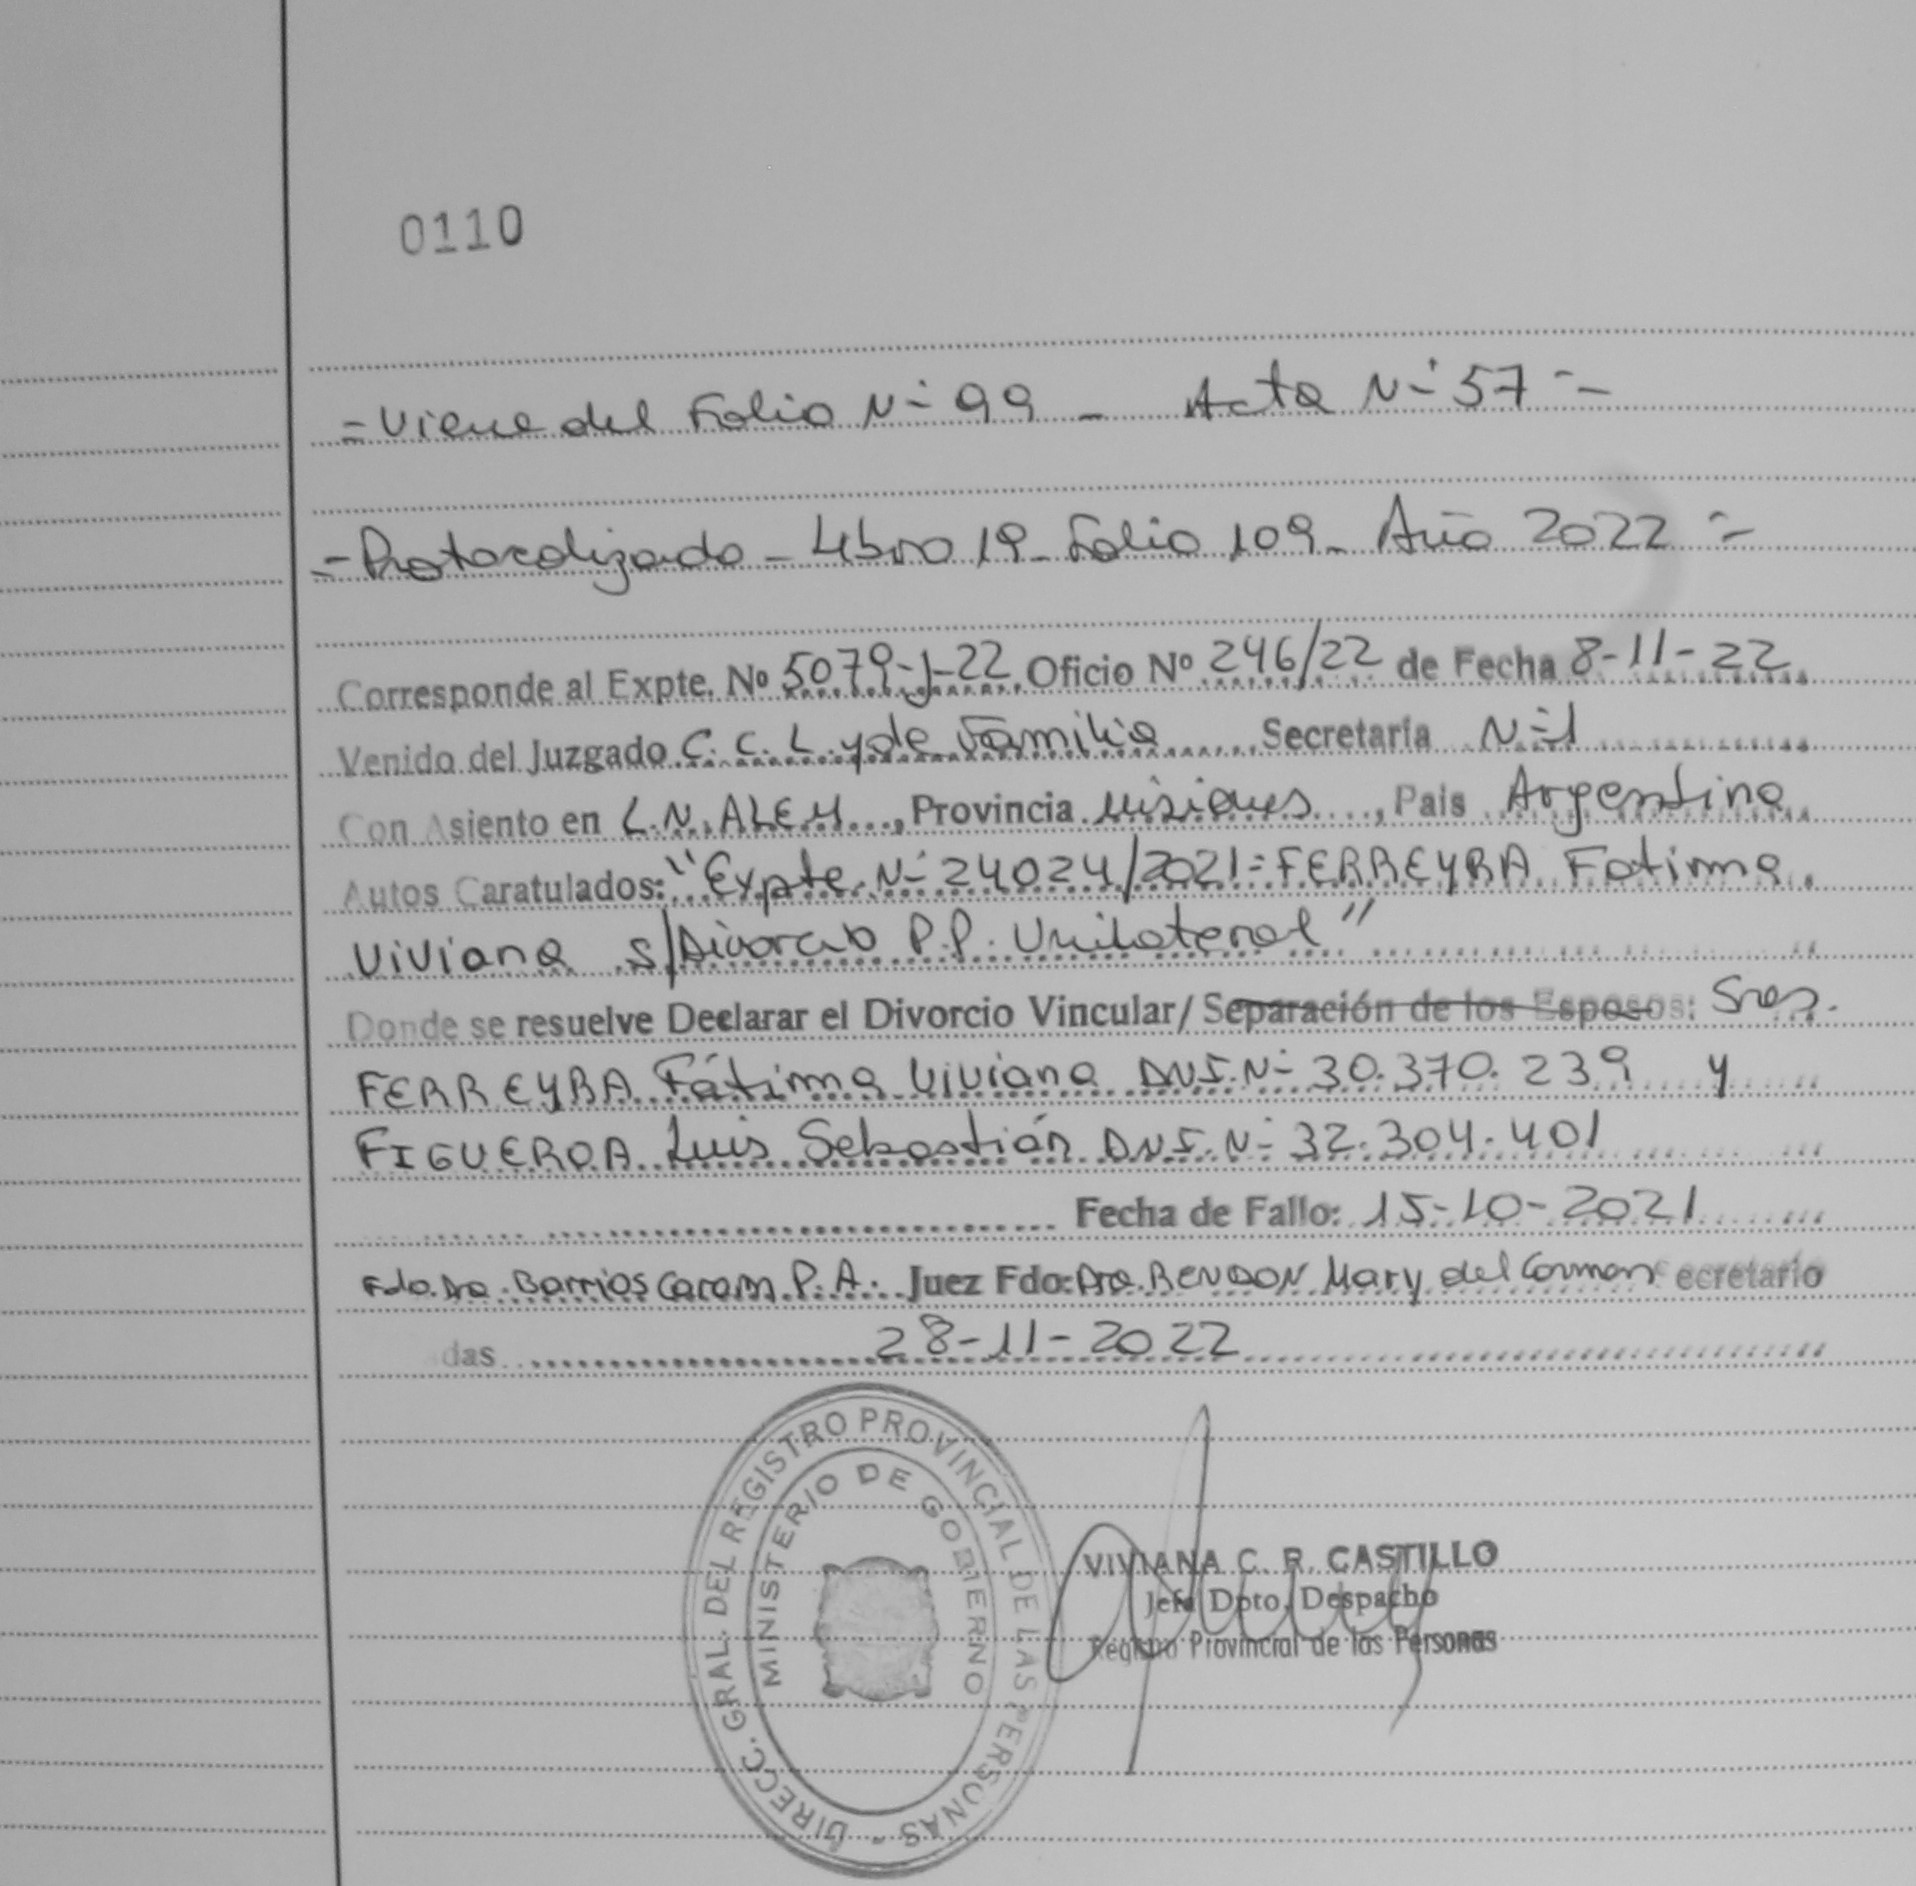 0110
= Viene del Folio N° 99 - Acta N° 57 =
- Protocolizado - Libro 19 - Folio 109 - Año 2022 =
Corresponde al Expte. Nº 5079-J-22 Oficio Nº 246/22 de Fecha 8-11-22
Venido del Juzgado C. C. L. y de Familia Secretaría N° 1
Con Asiento en L.N. ALEM, Provincia Misiones, País Argentina
Autos Caratulados: "Expte. N° 24024/2021 = FERREYRA Fatima
Viviana s/Divorcio P.P. Unilateral"
Donde se resuelve Declarar el Divorcio Vincular/ Separación de los Esposos: Sres.
FERREYRA Fátima Viviana D.N.I. N° 30.370.239 y
FIGUEROA Luis Sebastián D.N.I. N° 32.304.401
Fecha de Fallo: 15-10-2021
Fdo. Dra. Barrios Caram P. A. Juez Fdo: Dra. RENDON Mary del Carmen ecretario
das 28-11-2022
DIRECC. GRAL. DEL REGISTRO PROVINCIAL DE LAS PERSONAS -
MINISTERIO DE GOBIERNO
VIVIANA C. R. CASTILLO
Jefa Dpto. Despacho
Registro Provincial de las Personas